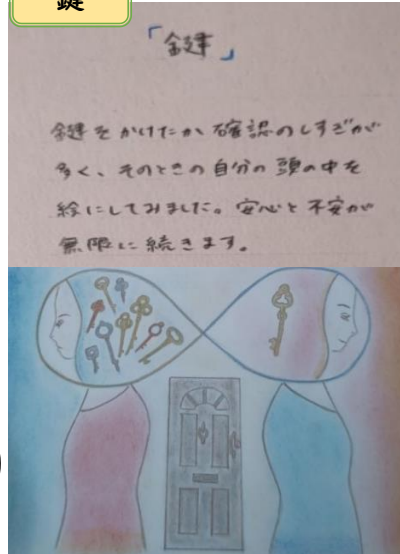 鍵
「鍵」
鍵をかけたか確認のしすぎが
多く、そのときの自分の頭の中を
絵にしてみました。安心と不安が
無限に続きます。